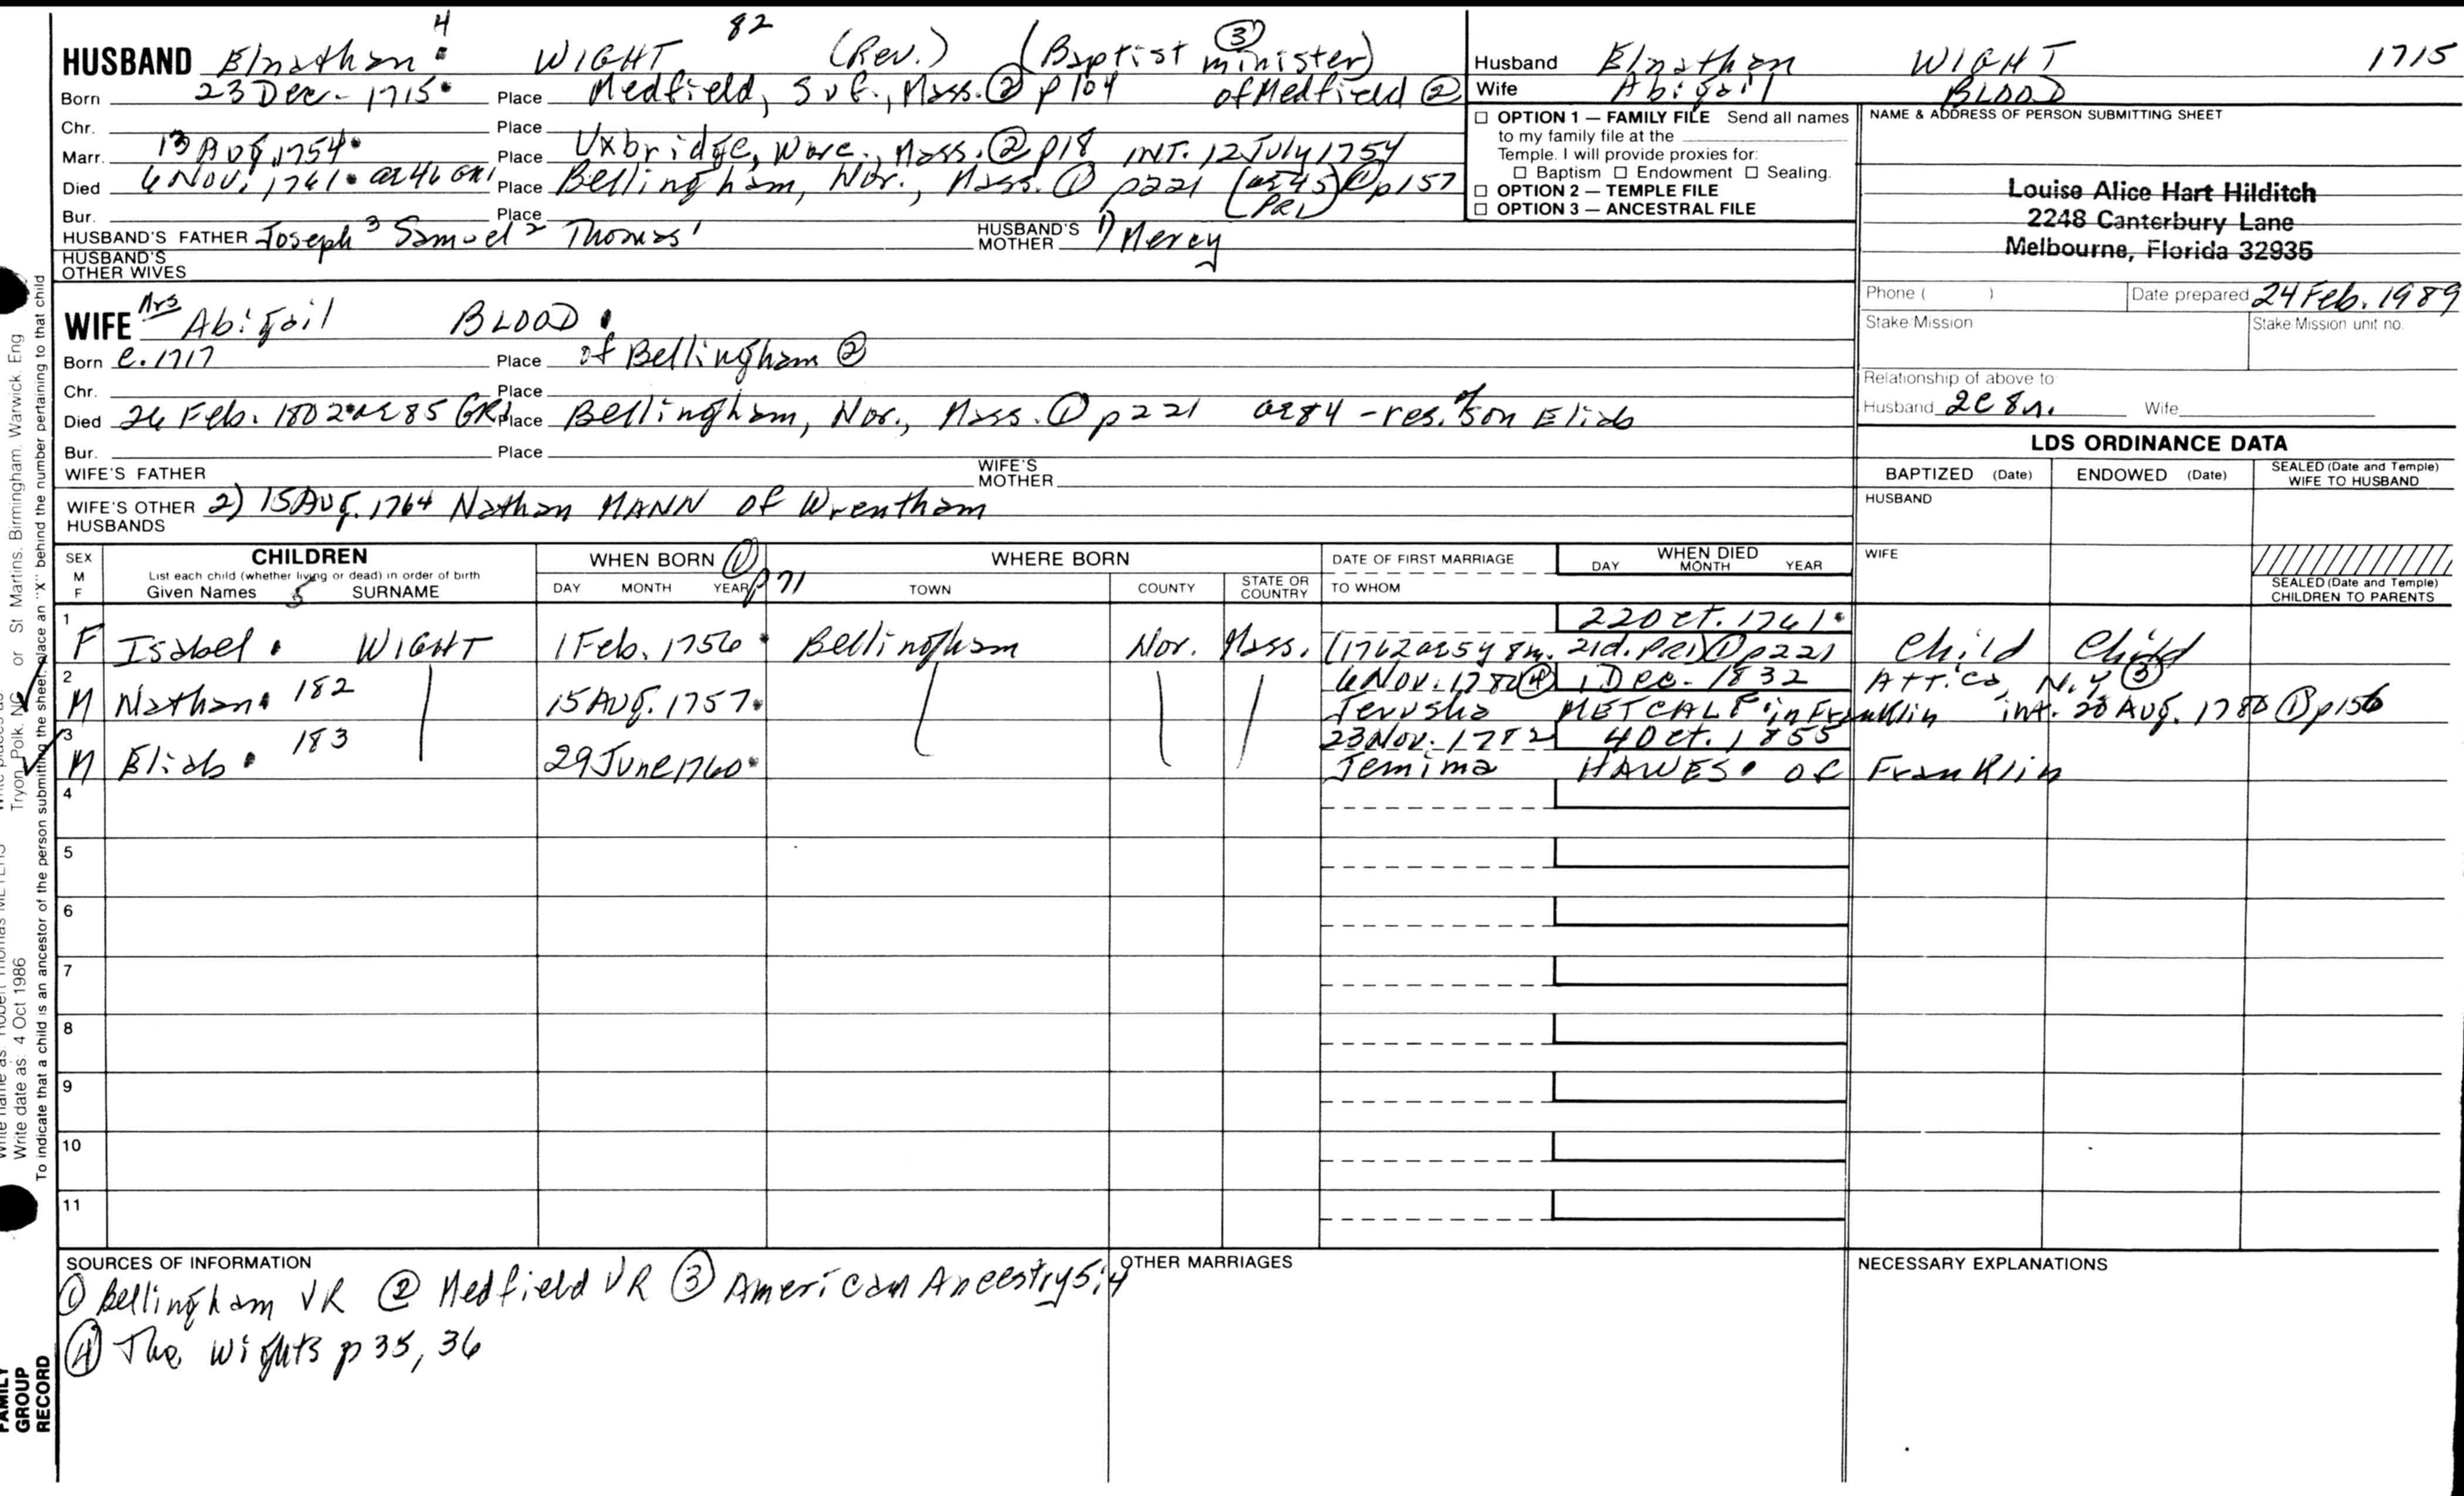 4 82
HUSBAND Elnathan WIGHT (Rev.) (Baptist ③ minister)
Born 23 Dec. 1715 Place Medfield, Suf., Mass. ② p 104 of Medfield ②
Chr. Place
Marr. 13 Aug. 1754 Place Uxbridge, Worc., Mass. ② p18 INT. 12 July 1754
Died 6 Nov. 1761 ae 46 GR1 Place Bellingham, Nor., Mass. ① p221 (ae 45) ① p157
Bur. Place (PR1)
HUSBAND'S FATHER Joseph 3 Samuel 2 Thomas 1 HUSBAND'S MOTHER 1) Mercy
HUSBAND'S OTHER WIVES
WIFE Mrs Abigail BLOOD
Born c. 1717 Place of Bellingham ②
Chr. Place
Died 26 Feb. 1802 ae 85 GR1 Place Bellingham, Nor., Mass. ① p221 ae 84 - res. of son Eliab
Bur. Place
WIFE'S FATHER WIFE'S MOTHER
WIFE'S OTHER HUSBANDS 2) 15 Aug. 1764 Nathan MANN of Wrentham
Husband Elnathan WIGHT 1715
Wife Abigail BLOOD
☐ OPTION 1 — FAMILY FILE Send all names
to my family file at the
Temple. I will provide proxies for:
☐ Baptism ☐ Endowment ☐ Sealing.
☐ OPTION 2 — TEMPLE FILE
☐ OPTION 3 — ANCESTRAL FILE
NAME & ADDRESS OF PERSON SUBMITTING SHEET
Louise Alice Hart Hilditch
2248 Canterbury Lane
Melbourne, Florida 32935
Phone ( ) Date prepared 24 Feb. 1989
Stake/Mission Stake/Mission unit no.
Relationship of above to
Husband 2C 8r. Wife
LDS ORDINANCE DATA
BAPTIZED (Date) ENDOWED (Date) SEALED (Date and Temple) WIFE TO HUSBAND
HUSBAND
WIFE
SEALED (Date and Temple) CHILDREN TO PARENTS
SEX M F CHILDREN WHEN BORN ① p71 WHERE BORN DATE OF FIRST MARRIAGE WHEN DIED
List each child (whether living or dead) in order of birth DAY MONTH YEAR
Given Names 5 SURNAME DAY MONTH YEAR TOWN COUNTY STATE OR COUNTRY TO WHOM
1 22 Oct. 1761
F Isabel WIGHT 1 Feb. 1756 Bellingham Nor. Mass. (1762 ae 5y 8m. 21d. PR1) ① p221 Child Child
2 6 Nov. 1780 ④ 1 Dec. 1832 Attica, N.Y. ③
M Nathan 182 15 Aug. 1757 Jerusha METCALF in Franklin int. 28 Aug. 1780 ① p156
3 23 Nov. 1782 4 Oct. 1855
M Eliab 183 29 June 1760 Jemima HAWES of Franklin
4
5
6
7
8
9
10
11
SOURCES OF INFORMATION
① Bellingham VR ② Medfield VR ③ American Ancestry 5:4
④ The Wights p 35, 36
OTHER MARRIAGES
NECESSARY EXPLANATIONS
FAMILY
GROUP
RECORD
Write date as: 4 Oct 1986
Tryon, Polk, NC or St. Martins, Birmingham, Warwick, Eng
To indicate that a child is an ancestor of the person submitting the sheet, place an "X" behind the number pertaining to that child